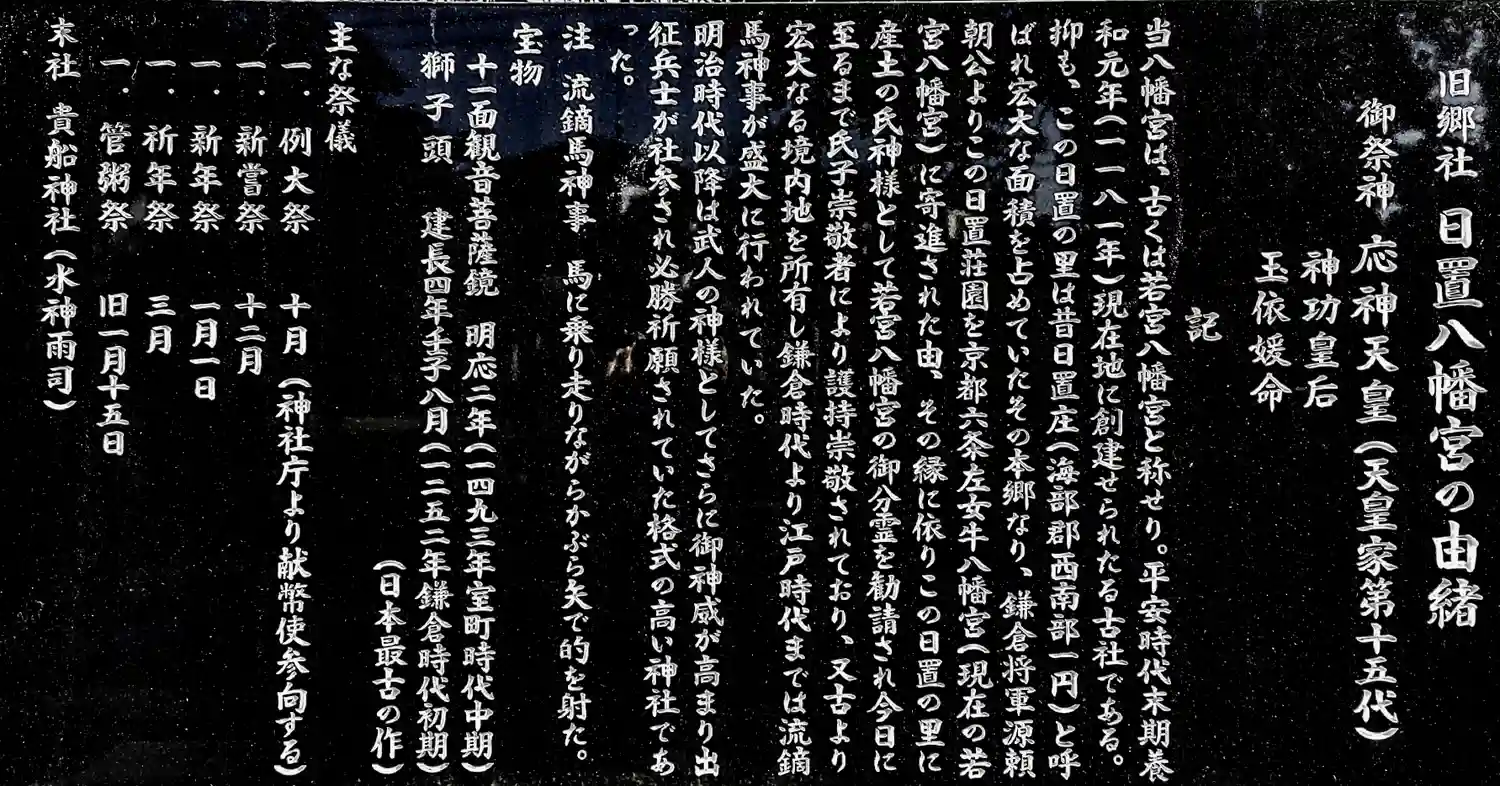 旧郷社 日置八幡宮の由緒
御祭神 応神天皇(天皇家第十五代)
神功皇后
玉依媛命
記
当八幡宮は、古くは若宮八幡宮と称せり。平安時代末期養
和元年(一一八一年)現在地に創建せられたる古社である。
抑も、この日置の里は昔日置庄(海部郡西南部一円)と呼
ばれ宏大な面積を占めていたその本郷なり、鎌倉将軍源頼
朝公よりこの日置荘園を京都六条左女牛八幡宮(現在の若
宮八幡宮)に寄進された由、その縁に依りこの日置の里に
産土の氏神様として若宮八幡宮の御分霊を勧請され今日に
至るまで氏子崇敬者により護持崇敬されており、又古より
宏大なる境内地を所有し鎌倉時代より江戸時代までは流鏑
馬神事が盛大に行われていた。
明治時代以降は武人の神様としてさらに御神威が高まり出
征兵士が社参され必勝祈願されていた格式の高い神社であ
った。
注 流鏑馬神事 馬に乗り走りながらかぶら矢で的を射た。
宝物
十一面観音菩薩鏡 明応二年(一四九三年室町時代中期)
獅子頭 建長四年壬子八月(一二五二年鎌倉時代初期)
(日本最古の作)
主な祭儀
一.例大祭 十月(神社庁より献幣使参向する)
一.新嘗祭 十二月
一.新年祭 一月一日
一.祈年祭 三月
一.管粥祭 旧一月十五日
末社 貴船神社(水神雨司)